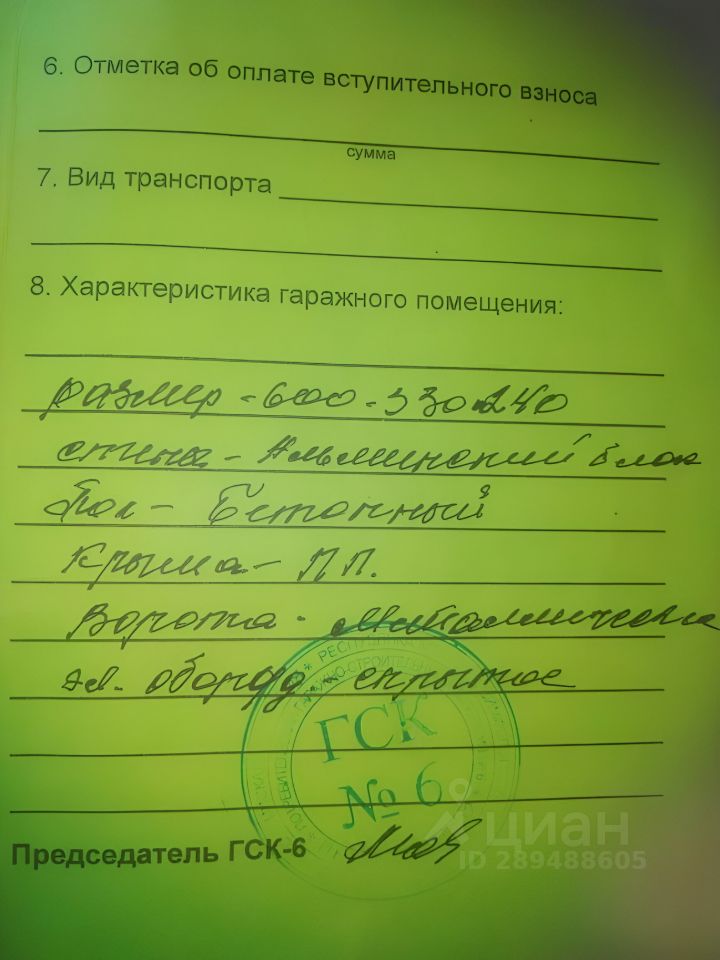 6. Отметка об оплате вступительного взноса
сумма
7. Вид транспорта
8. Характеристика гаражного помещения:
размер - 600 - 330 х 240
стены - Альминский блок
Пол - Бетонный
Крыша - П.П.
Ворота - Металлические
эл. оборуд. скрытое
РЕСПУБЛИКА
ГСК
№ 6
Председатель ГСК-6
циан
ID 289488605